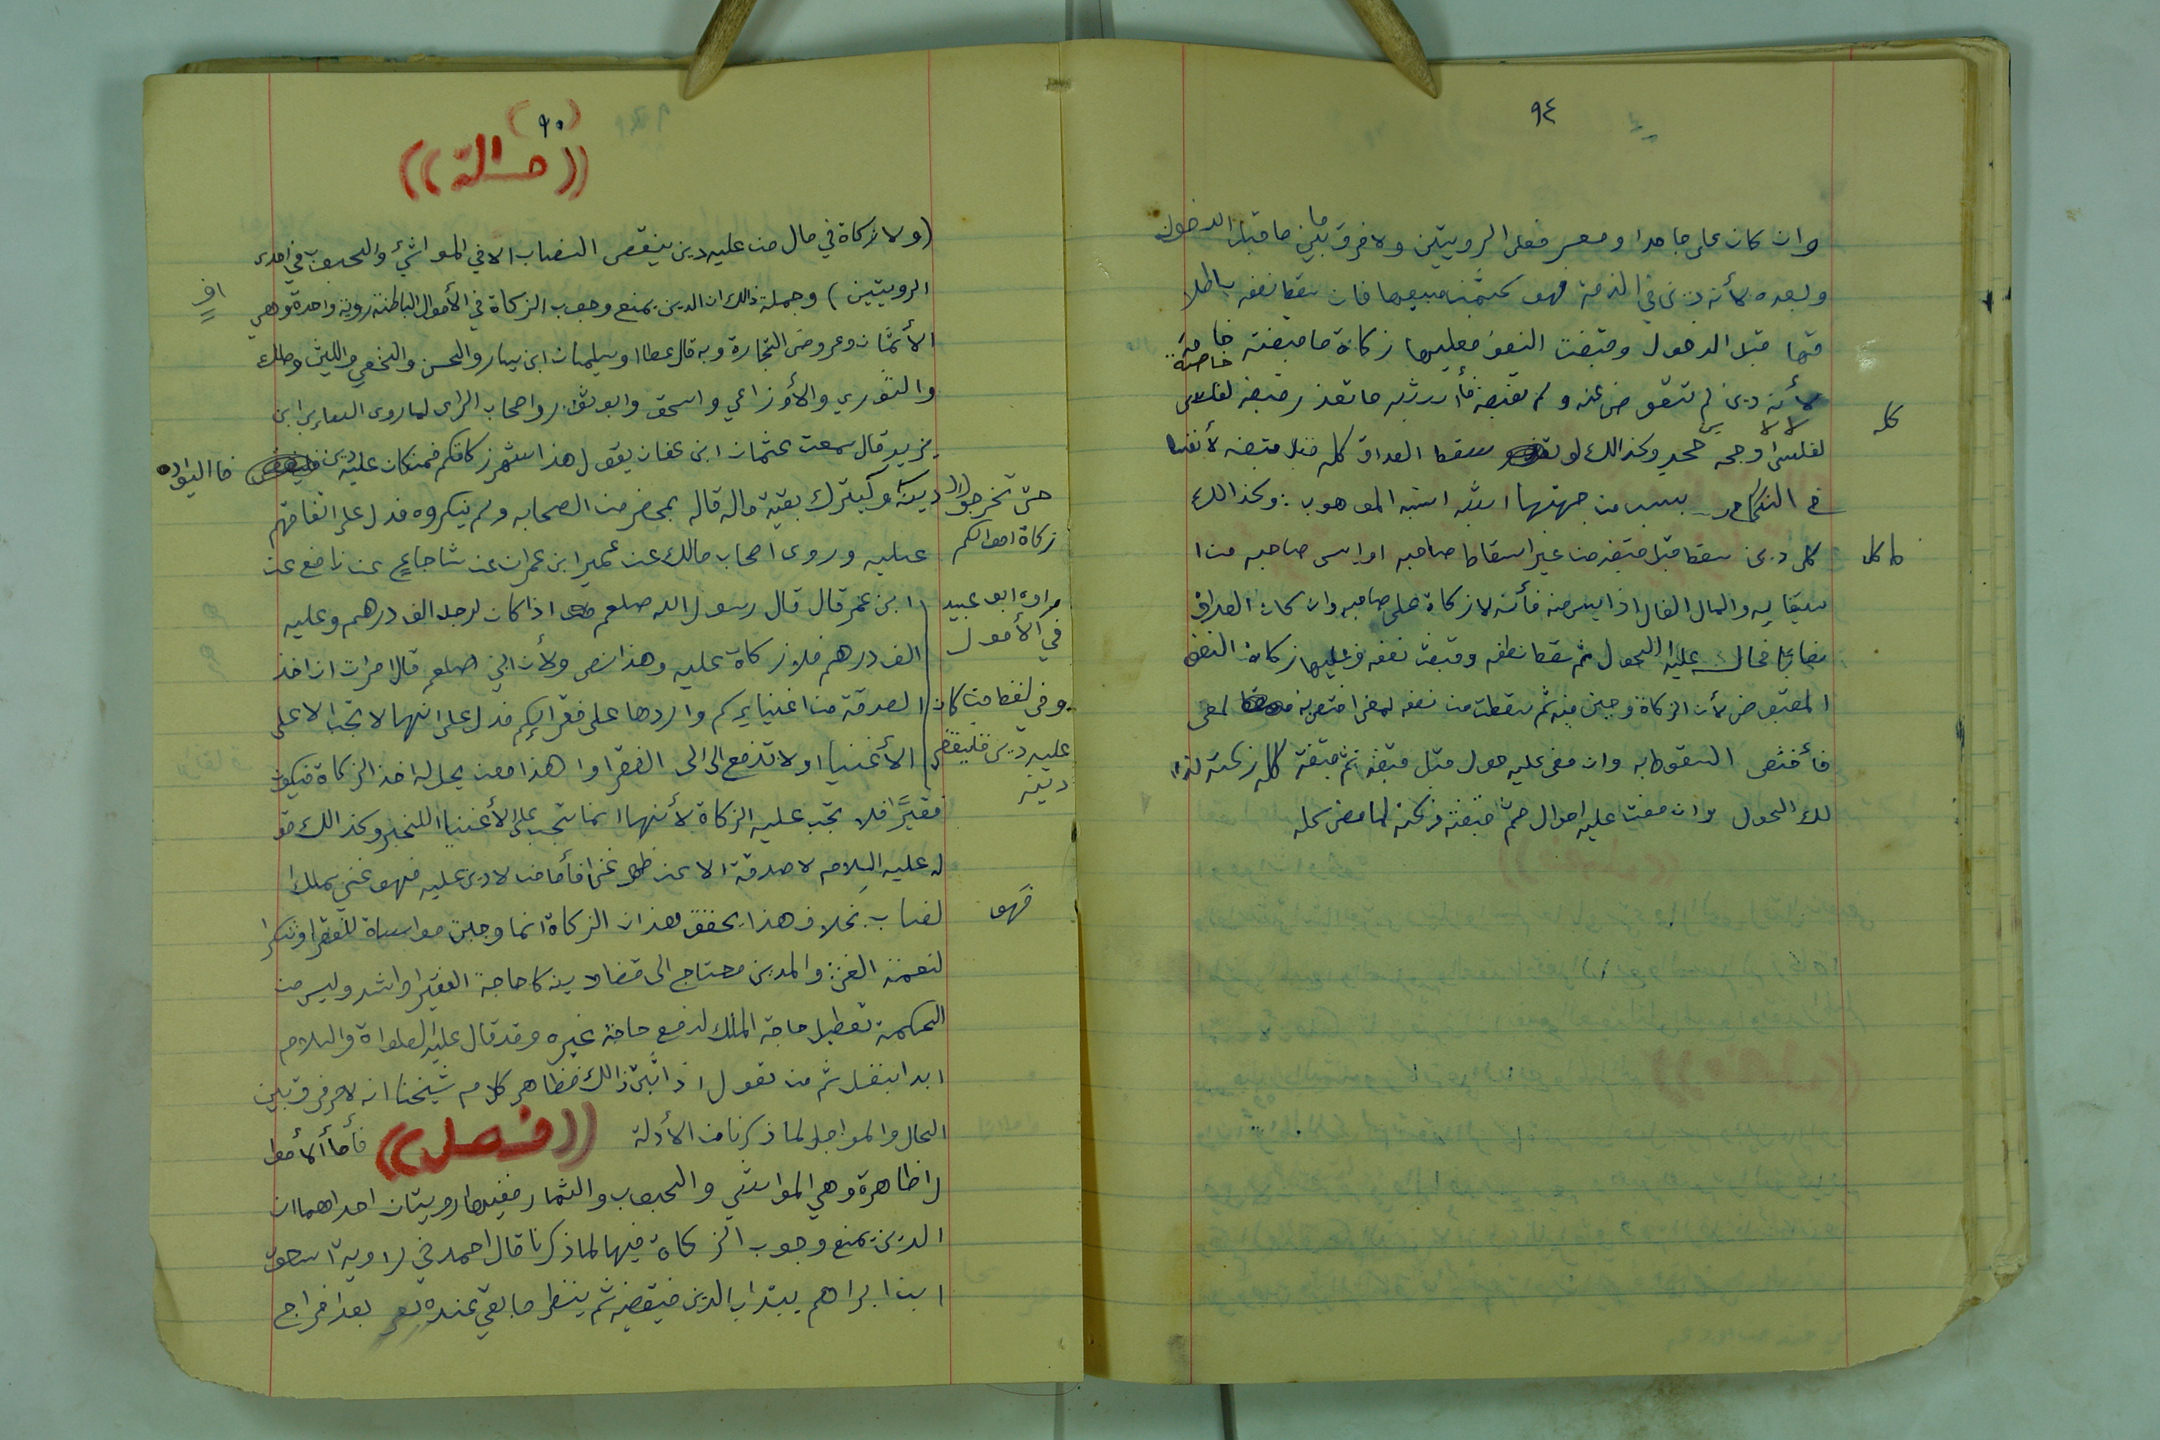 ٩٤
وان كان على جاحدا ومعسر فعلى الرويتين ولا فرق بين ما قبل الدخول
وبعده لأنه دين في الذمة فهو كثمن مبيعها فان سقط نصفه بطلا
قها قبل الدخول وقبضت النصف فعليها زكاة ما قبضته خاصة
خاصة
لأنه دين لم تتعوض عنه ولم تقبضه فأ
كله
لفلس او جحد وكذالك لو سقط الصداق كله قبل قبضه لأنفسا
خ النكاح بسبب من جهتها اشبه الموهوب : وكذالك
كل دين سقط قبل قبضه من غير اسقاط صاحبه او ايس صاحبه من ا
ستيفايه والمال الضال اذا ايس منه فأنه لا زكاة على صاحبه وان كان الصداق
نصابا فحال عليه الحول ثم سقط نصفه وقبضت نصفه فعليها زكاة النصف
المقبوض لأن الزكاة وجبت فيه ثم سقطت من نصفه لمعنى اختص به
فأختص السقوط به وان مضى عليه حول قبل قبضه ثم قبضته كله زكته لذا
لك الحول وان مضت عليه احوال قبضته زكته لما مضى كله
(٩٠)
((مسالة))
(ولا زكاة في مال من عليه دين ينقص النصاب الا في المواشي والحبوب في احدى
الرويتين) وجملة ذالك ان الدين يمنع وجوب الزكاة في الأموال الباطنة روية واحدة وهي
الأثمان وعروض التجارة وبه قال عطا وسليمان ابن يسار والحسن والنخعي والليث ومالك
والثوري والأوزاعي واسحق وابو ثور واصحاب الراى لما روى السايب ابن
يزيد قال سمعت عثمان ابن عفان يقول هذا شهر زكاتكم فمن كان عليه دين فاليؤد
حتى تخرجوا
زكاة اموالكم
دينه وليترك بقية ماله قاله بمحضر من الصحابه ولم ينكروه فدل على اتفاقهم
عليه وروى اصحاب مالك عن عمير ابن عمران عن شجاع عن نافع عن
رواه ابو عبيد
في الأموال
ابن عمر قال قال رسول الله صلعم اذا كان لرجل الف درهم وعليه
الف درهم فلا زكاة عليه وهذا نص ولأن النبي صلعم قال امرت ان اخذ
وفي لفظ من كان
عليه دين فليقض
دينه
الصدقة من اغنيايكم واردها على فقرايكم فدل على انها لا تجب الا على
الأغنيا ولا تدفع الا الى الفقرا وهذا ممن يحل له اخذ الزكاة فيكون
فقيرًا فلا تجب عليه الزكاة لأنها انما تجب على الأغنيا للخبر وكذالك قو
له عليه السلام لا صدقة الا عن ظهر غنى فأما من لا دين عليه فهو غني يملك
فهو
نصاب بخلاف هذا يحقق هذا ان الزكاة انما وجبت مواساة للفقرا وشكرا
لنعمة الغنى والمدين محتاج الى قضا دينه كا حاجة الفقير او اشد وليس من
الحكمة تعطيل حاجة الملك لدفع حاجة غيره وقد قال عليه الصلواة والسلام
ابدا بنفسك ثم من تعول اذا ثبت ذالك فظاهر كلام شيخنا انه لا فرق بين
الحال والمواجل لما ذكرنا من الأدلة ((فصل)) فأما الأموا
ل ظاهرة وهي المواشي والحبوب والثمار ففيها رويتان احداهما ان
الدين يمنع وجوب الزكاة فيها لما ذكرنا قال احمد في رواية اسحق
ابن ابراهيم يبتدا بالدين فيقضيه ثم ينظر ما بقي عنده بعد اخراج